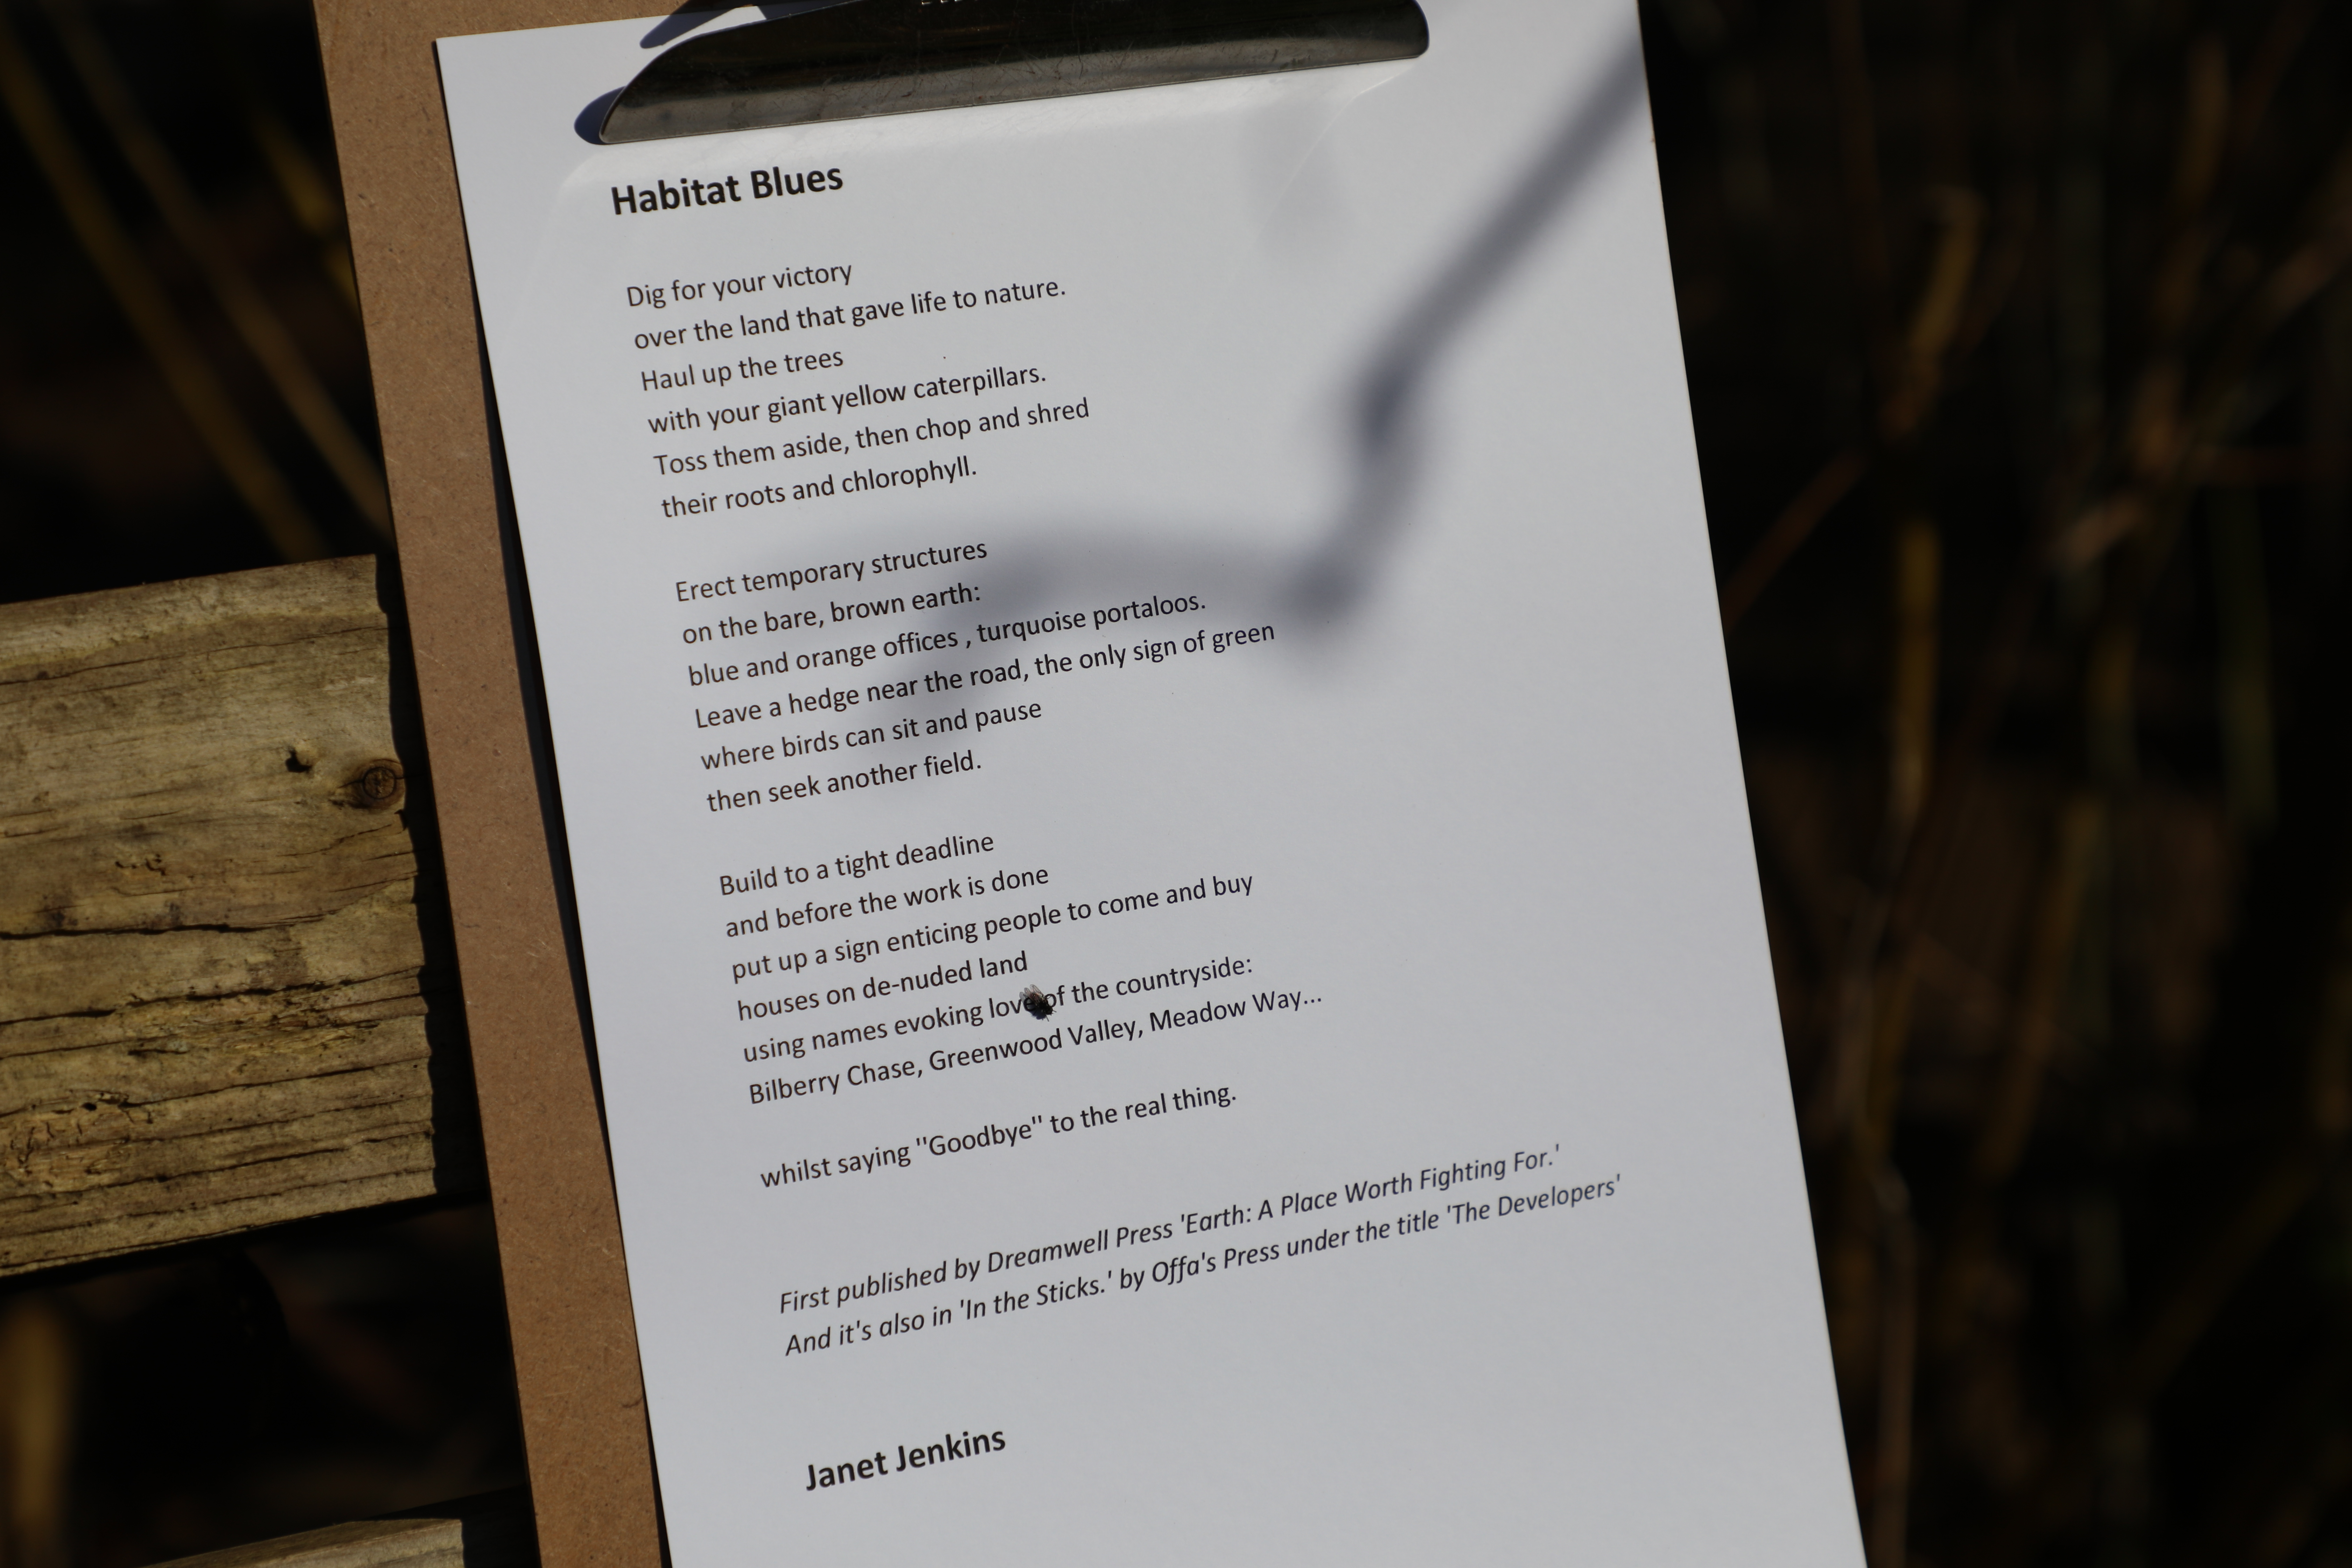 Habitat Blues
Dig for your victory
over the land that gave life to nature.
Haul up the trees
with your giant yellow caterpillars.
Toss them aside, then chop and shred
their roots and chlorophyll.
Erect temporary structures
on the bare, brown earth:
blue and orange offices , turquoise portaloos.
Leave a hedge near the road, the only sign of green
where birds can sit and pause
then seek another field.
Build to a tight deadline
and before the work is done
put up a sign enticing people to come and buy
houses on de-nuded land
using names evoking love of the countryside:
Bilberry Chase, Greenwood Valley, Meadow Way...
whilst saying "Goodbye" to the real thing.
First published by Dreamwell Press 'Earth: A Place Worth Fighting For.'
And it's also in 'In the Sticks.' by Offa's Press under the title 'The Developers'
Janet Jenkins